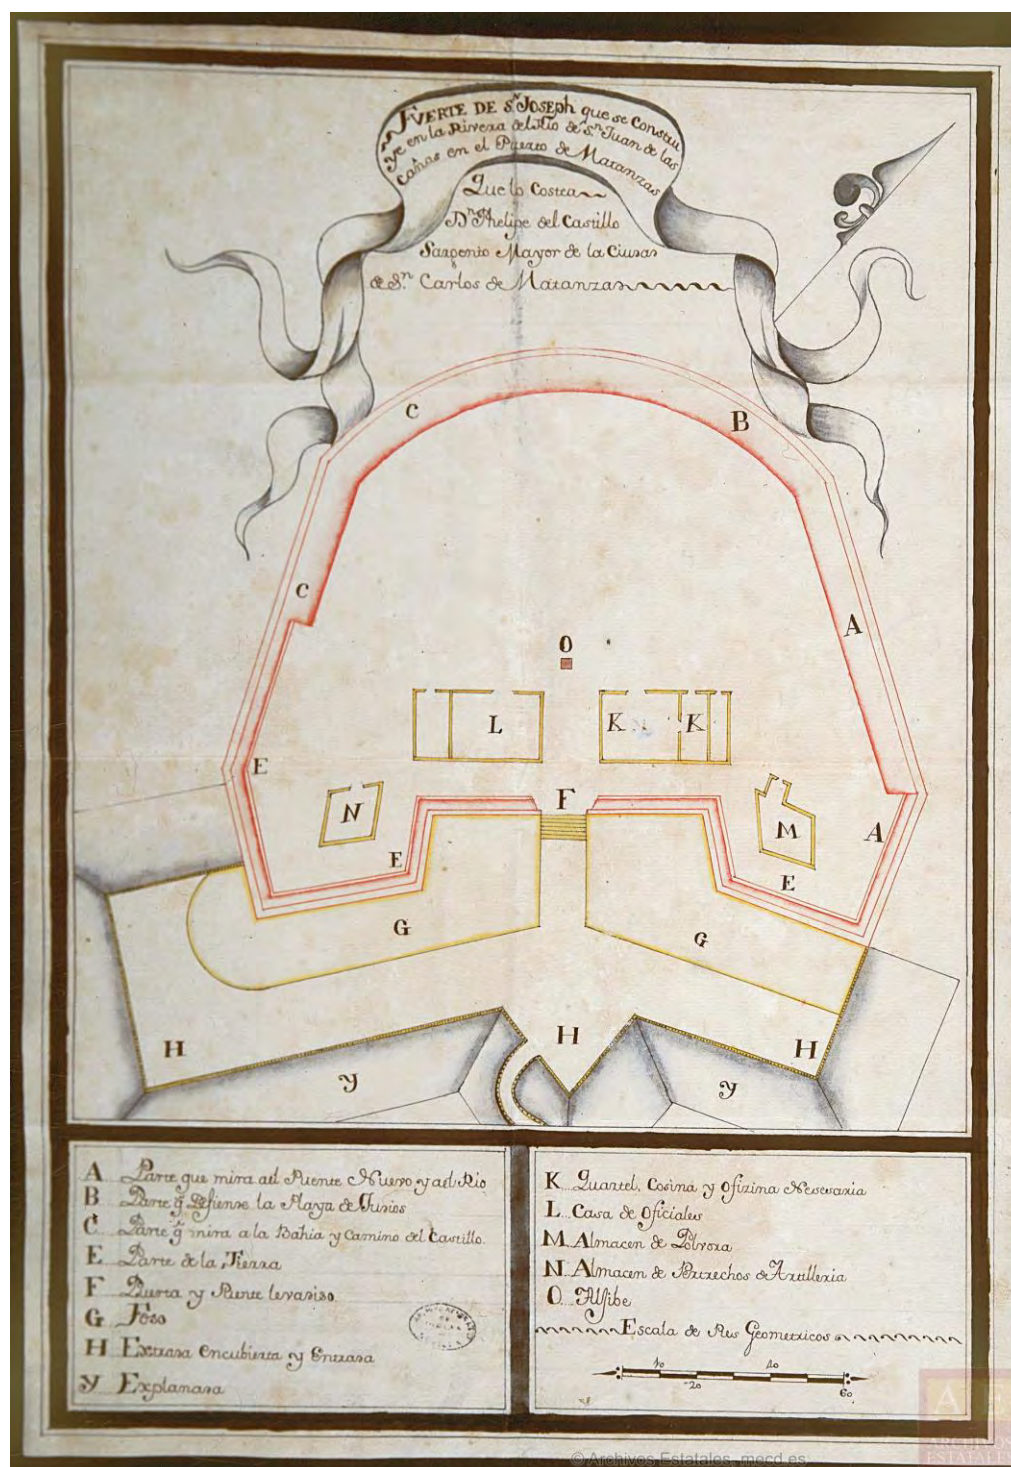 FUERTE DE Sn. JOSEPH que se Constru
ye en la Rivera del Rio de Sn. Juan de las
Cañas en el Puerto de Matanzas
Que lo Costea
Dn. Phelipe del Castillo
Sargento Mayor de la Ciudad
de Sn. Carlos de Matanzas
C
B
C
A
O
L
K
K
E
N
F
M
A
E
E
G
G
H
H
H
Y
Y
A Parte que mira ael Puente Nuevo y ael Rio
B Parte q̃ Defiende la Playa de Judios
C Parte q̃ mira a la Bahia y Camino del Castillo.
E Parte de la Tierra
F Puerta y Puente levadiso.
G Foso
H Extrada encubierta y Entrada
Y Explanada
K Quartel, Cosina y Ofizina Nesesaria
L Casa de Oficiales
M Almacen de Polvora
N Almacen de Pertrechos de Artilleria
O Aljibe
Escala de Pies Geometricos
10 40
20 60
© Archivos Estatales, mecd.es
A E
ARCHIVOS
ESTATALES